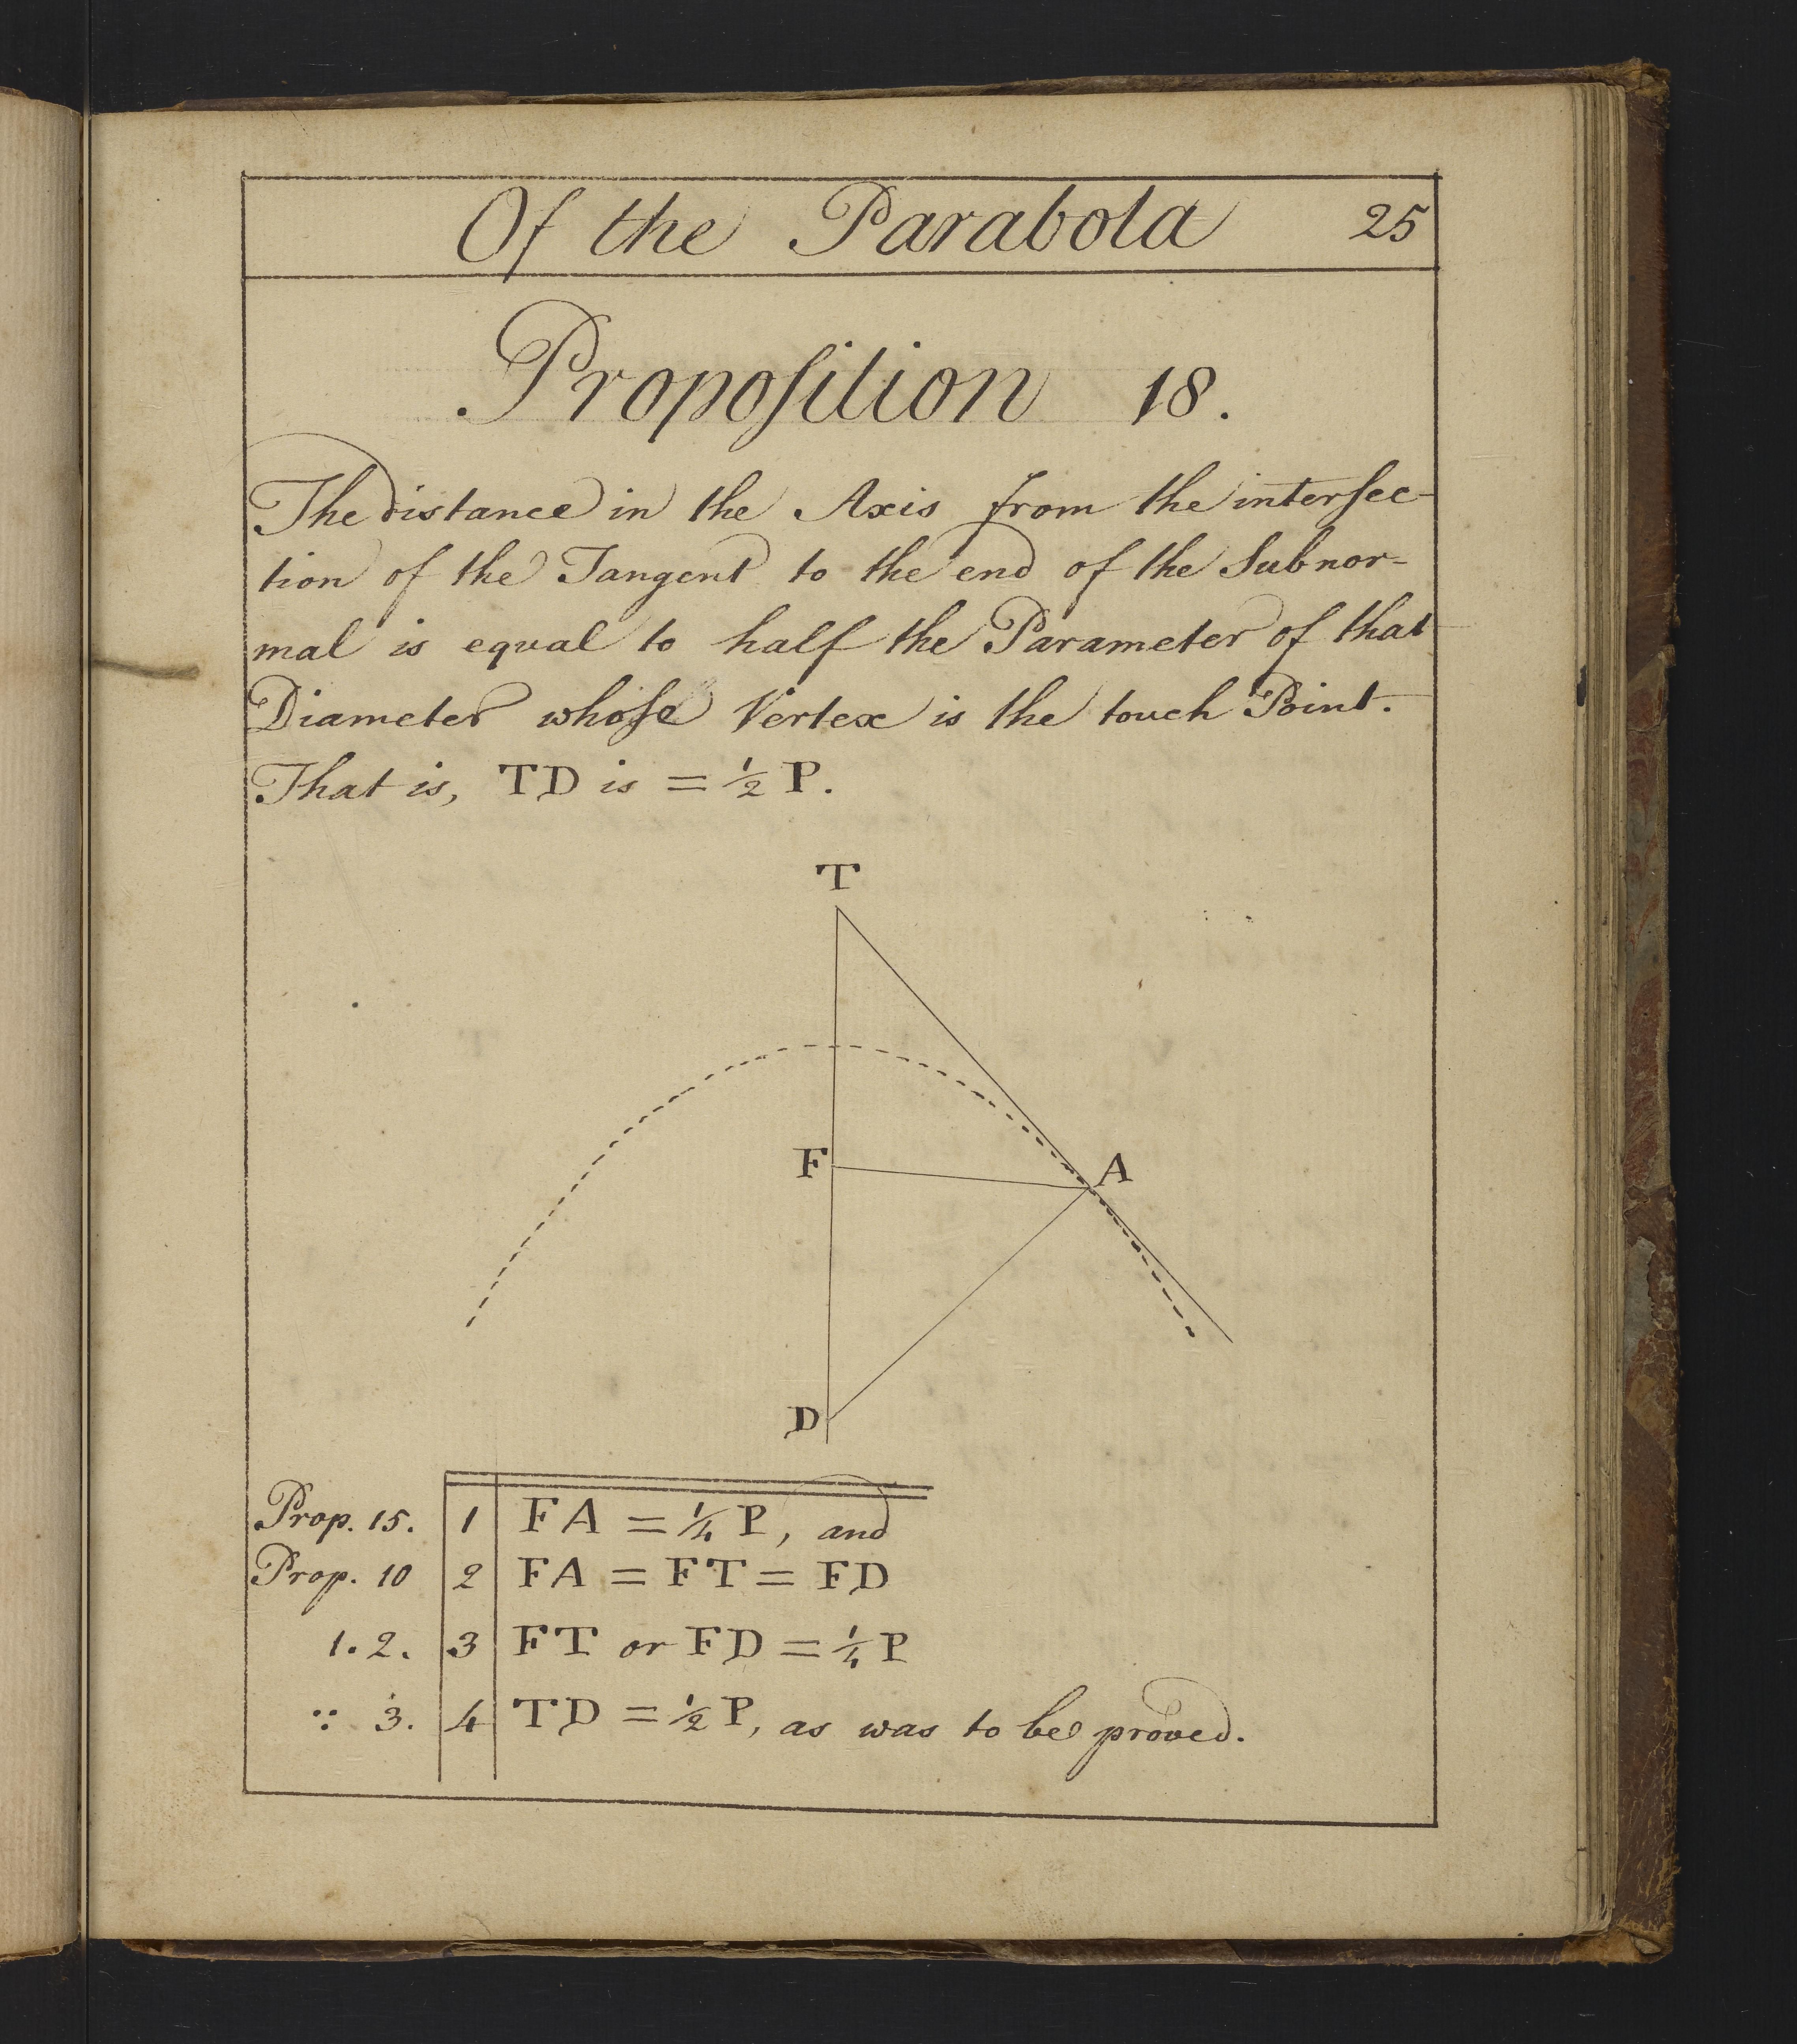 Of the Parabola 25
Propoſition 18.
The distance in the Axis from the interſec-
tion of the Tangent to the end of the Subnor-
mal is equal to half the Parameter of that
Diameter whoſe Vertex is the touch Point.
That is, TD is = ½ P.
T
F
A
D
Prop. 15. 1 FA = ¼ P, and
Prop. 10 2 FA = FT = FD
1. 2. 3 FT or FD = ¼ P
∵ 3. 4 TD = ½ P, as was to be proved.